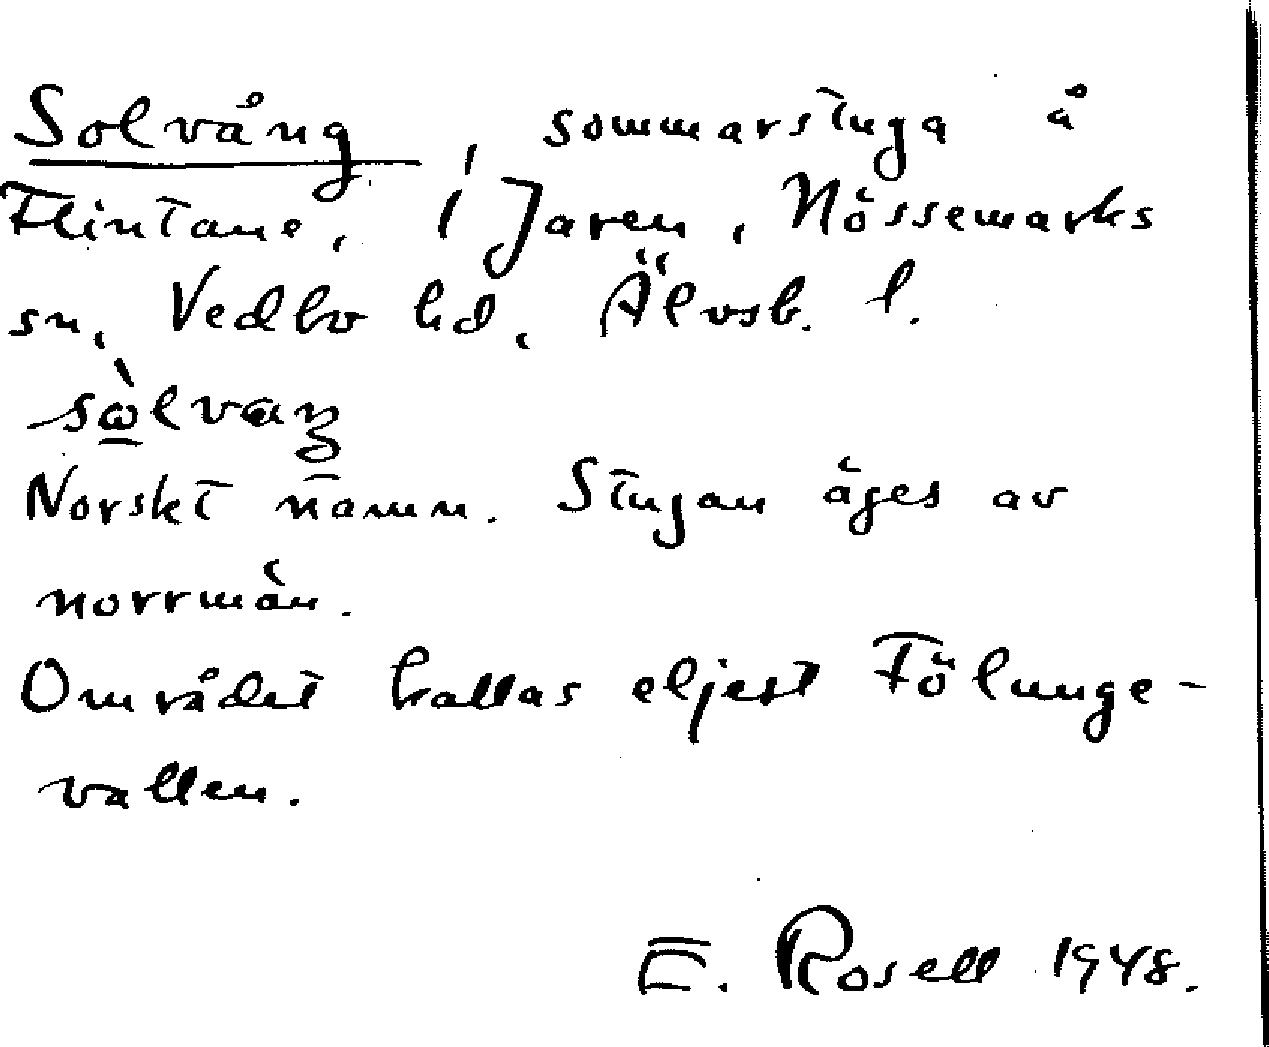 Solvång, sommarstuga å
Flintane, i Jaren, Nössemarks
sn, Vedbo hd, Älvsb. l.
Norskt namn. Stugan äges av
norrmän.
Området kallas eljest Fölunge-
vallen.
E. Rosell 1948.